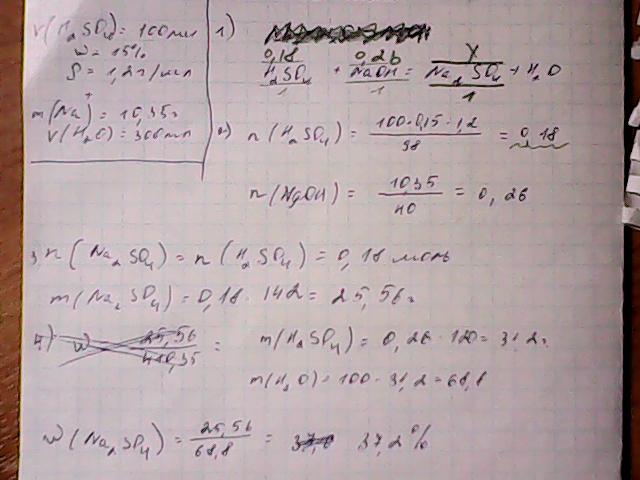 V(H₂SO₄) = 100мл
w = 15%
ρ = 1,2г/мл
m(Na) = 10,35г
V(H₂O) = 300мл
1)
0,18 0,26 X
H₂SO₄ + NaOH = Na₂SO₄ + H₂O
1 1 1
2) n(H₂SO₄) = 100·0,15·1,2 / 98 = 0,18
n(NaOH) = 10,35 / 40 = 0,26
3) n(Na₂SO₄) = n(H₂SO₄) = 0,18 моль
m(Na₂SO₄) = 0,18 · 142 = 25,56г
4) w 25,56 / 410,35 =
m(H₂SO₄) = 0,26 · 120 = 31,2г
m(H₂O) = 100 - 31,2 = 68,8
w(Na₂SO₄) = 25,56 / 68,8 = 37,2%